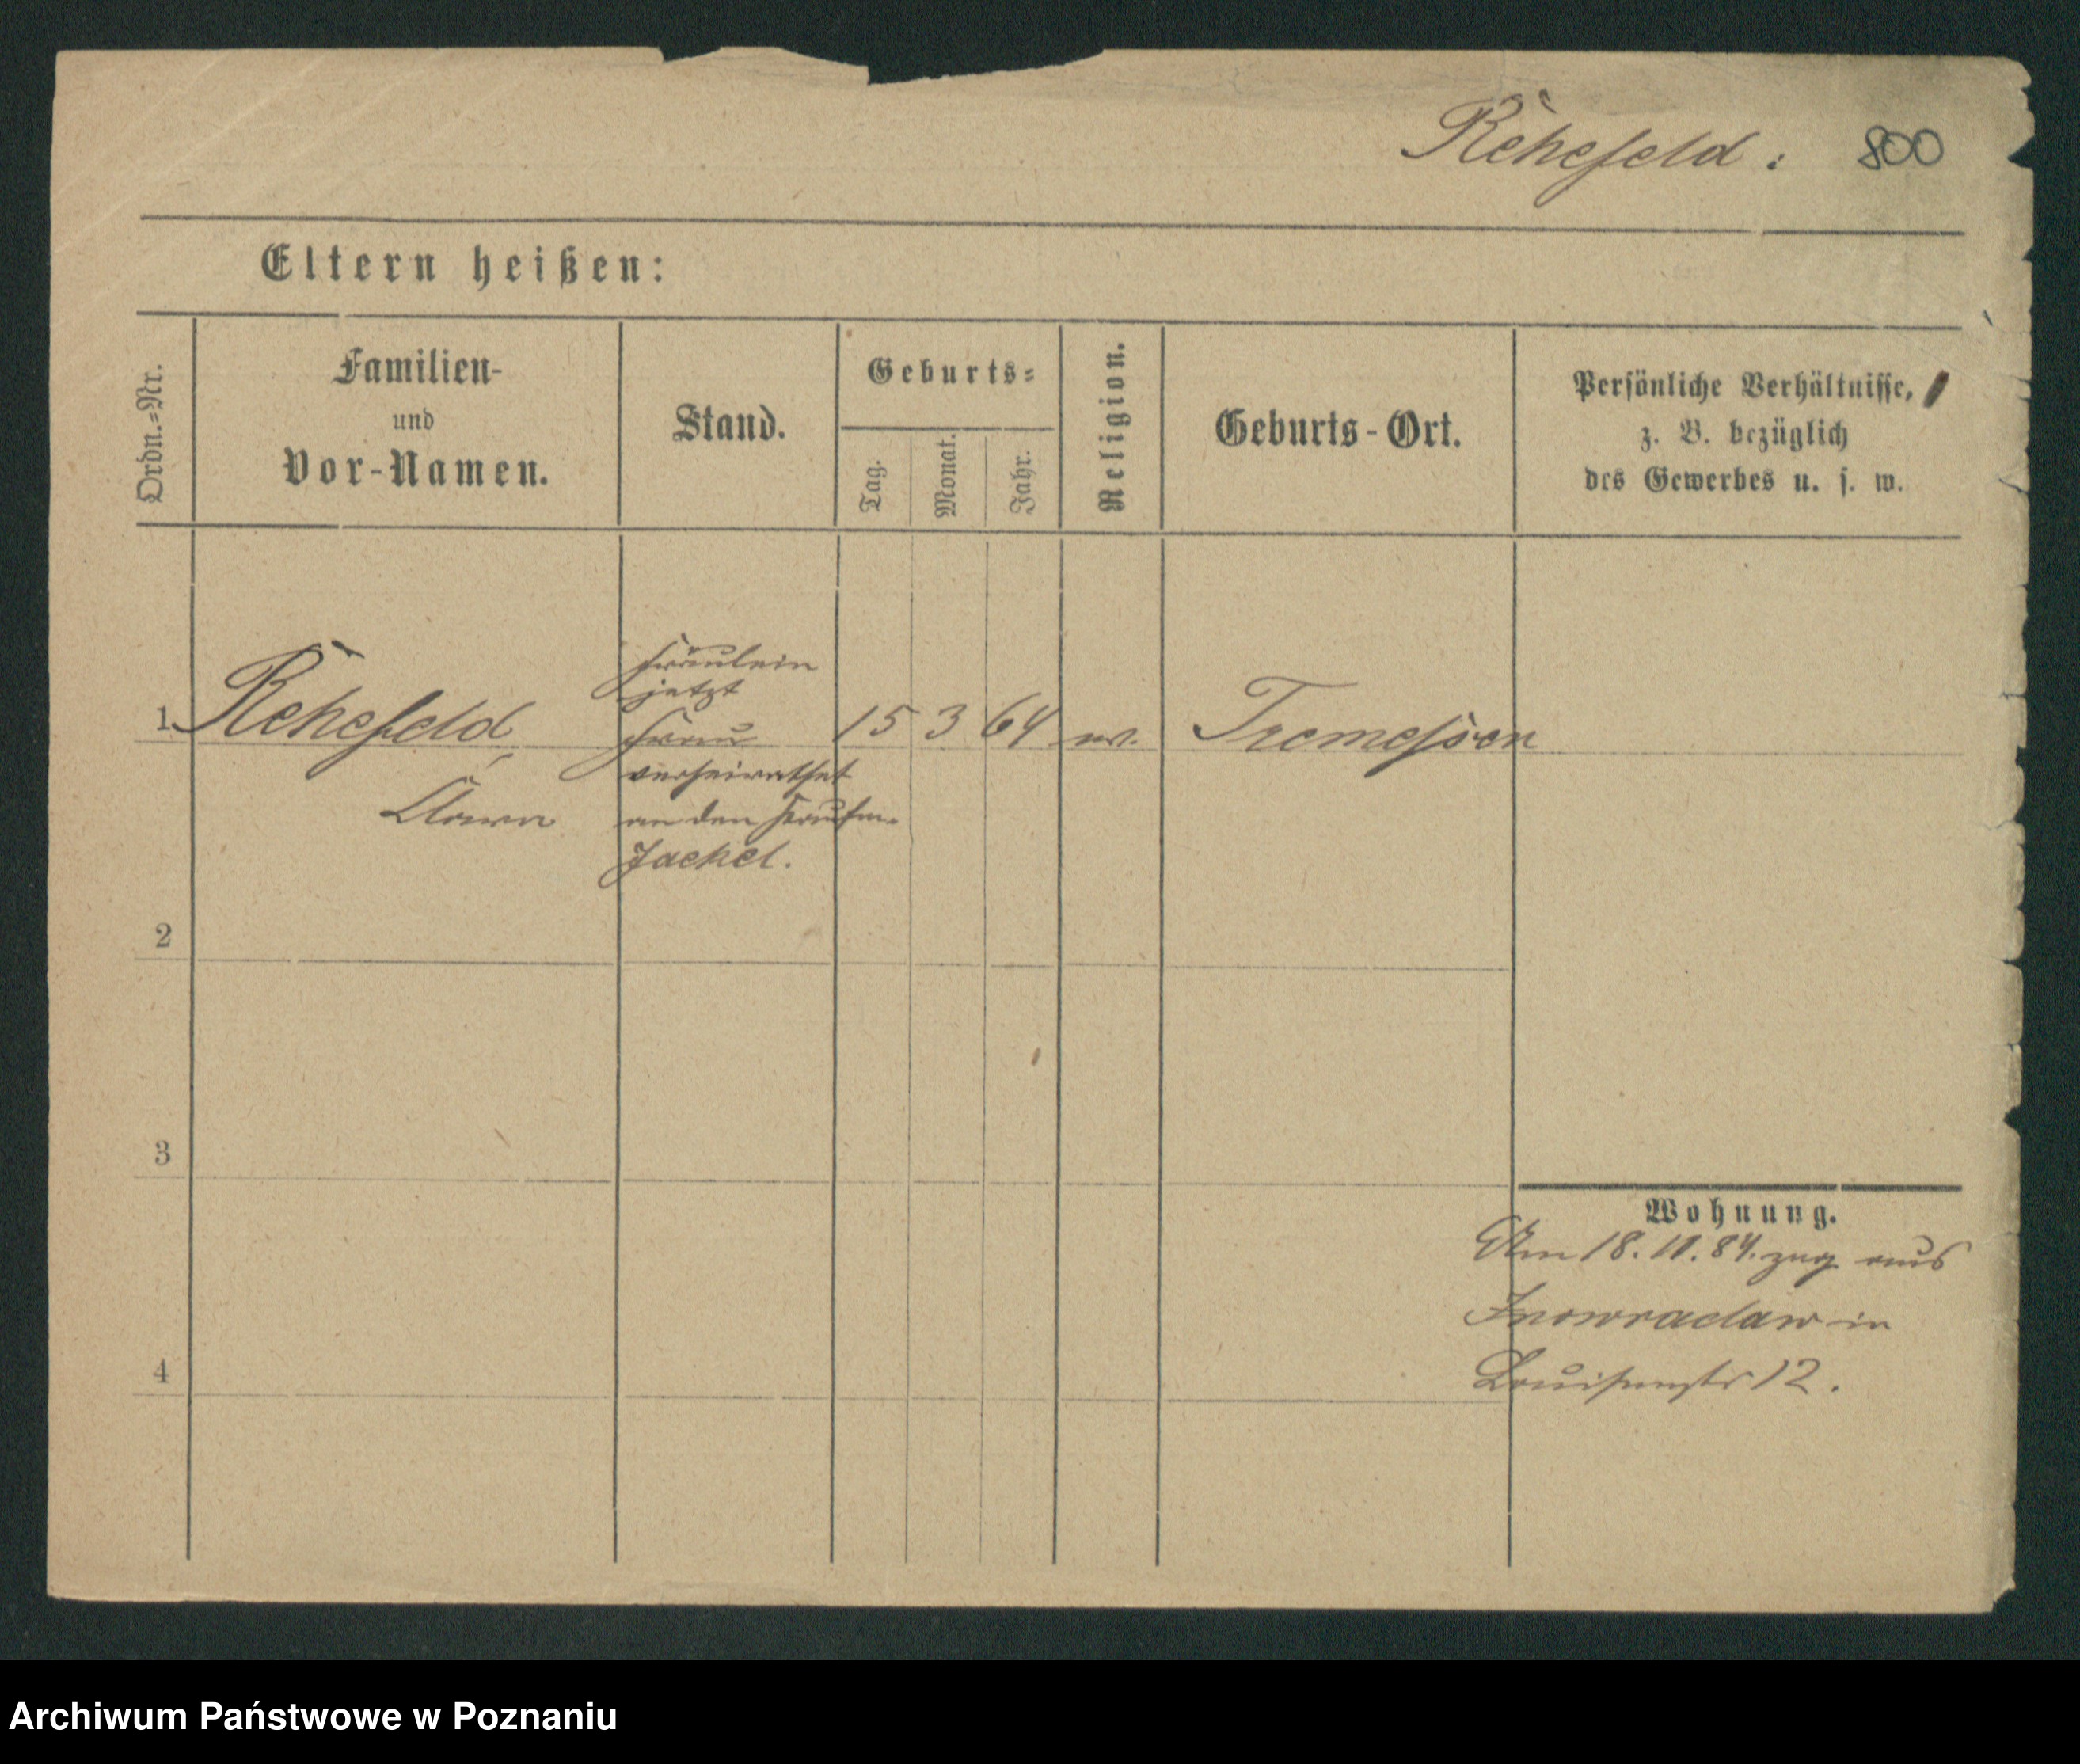 Rehefeld: 800
Eltern heißen:
Ordn.=Nr.
Familien-
und
Vor-Namen.
Stand.
Geburts=
Tag.
Monat.
Jahr.
Religion.
Geburts-Ort.
Persönliche Verhältnisse,
z. B. bezüglich
des Gewerbes u. s. w.
Fräulein
jetzt
1 Rehefeld, Frau 15 3 64 Tremessen
verheirathet
Clara an den Kaufm.
Jackel.
2
3
4
Wohnung.
Am 18. 11. 84. zug aus
Inowraclaw in
Louisenstr 12.
Archiwum Państwowe w Poznaniu